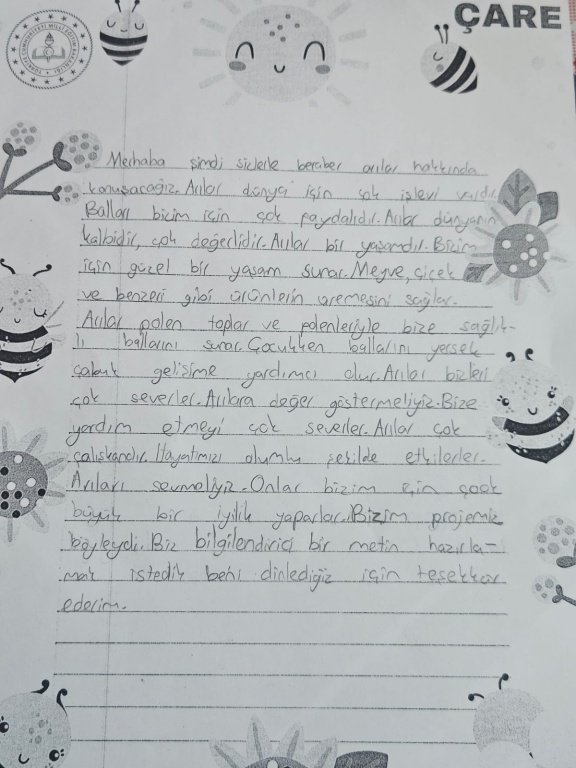 ÇARE
Merhaba şimdi sizlerle beraber arılar hakkında
konuşacağız. Arılar dünya için çok işlevi vardır
Balları bizim için çok faydalıdır. Arılar dünyanın
kalbidir, çok değerlidir. Arılar bir yaşamdır. Bizim
için güzel bir yaşam sunar. Meyve, çiçek
ve benzeri gibi ürünlerin üremesini sağlar.
Arılar polen toplar ve polenleriyle bize sağlık-
lı ballarını sunar. Çocukken ballarını yersek
çabuk gelişime yardımcı olur. Arılar bizleri
çok severler. Arılara değer göstermeliyiz. Bize
yardım etmeyi çok severler. Arılar çok
çalışkandır. Hayatımızı olumlu şekilde etkilerler.
Arıları sevmeliyiz. Onlar bizim için çook
büyük bir iyilik yaparlar. Bizim projemiz
böyleydi. Biz bilgilendirici bir metin hazırla-
mak istedik beni dinlediğiz için teşekkür
ederim.